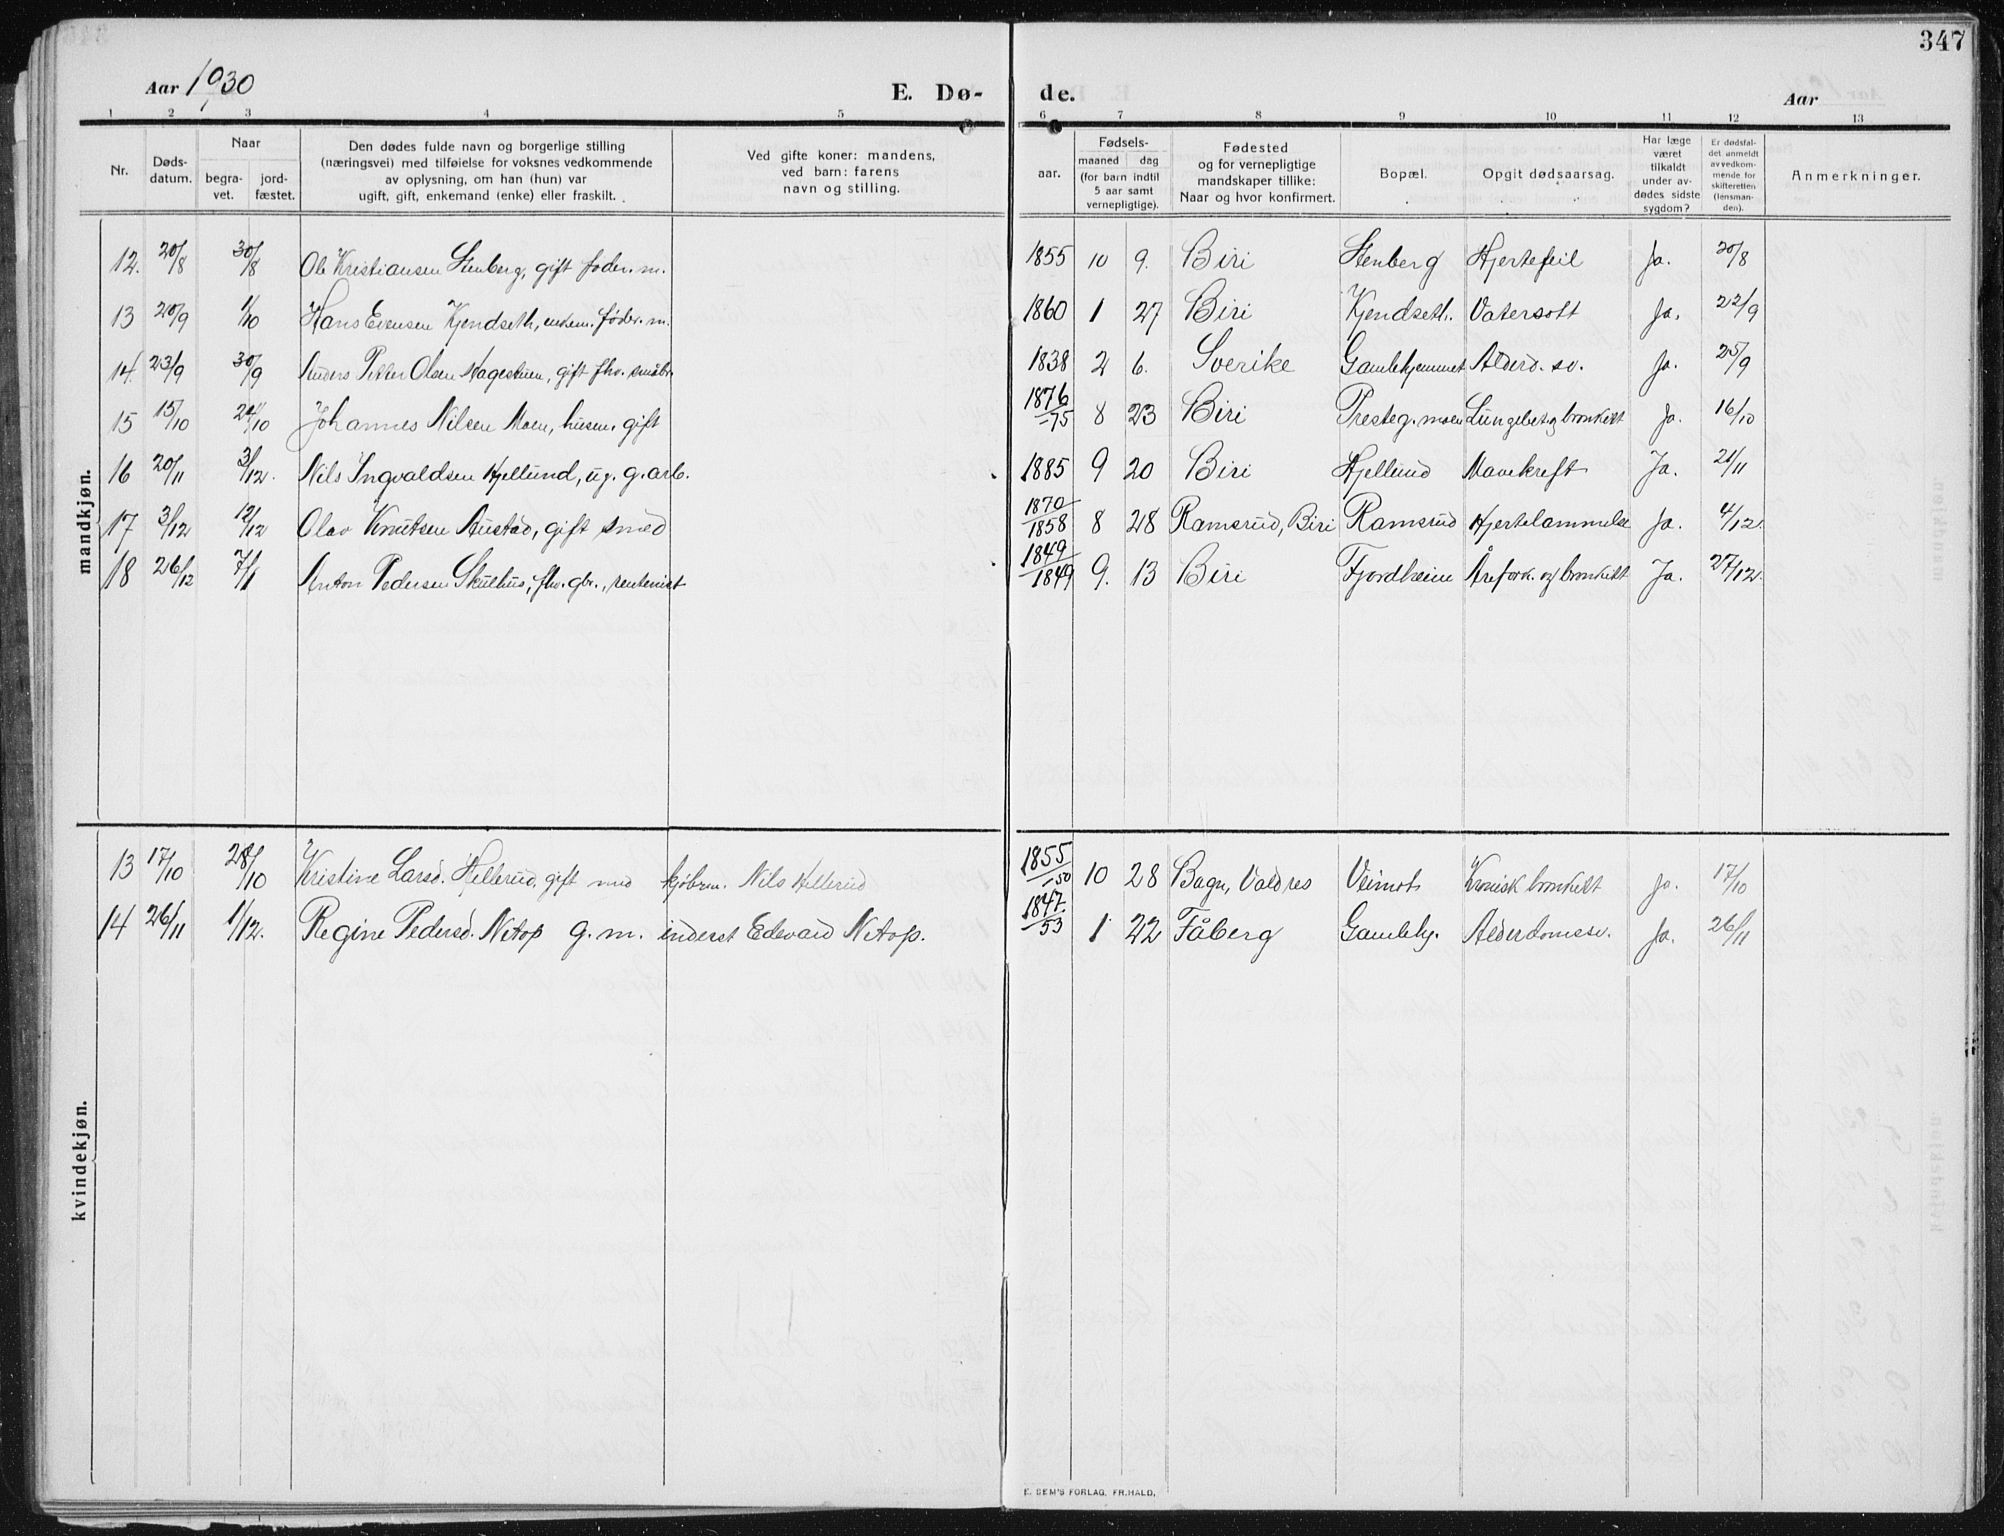 347
Aar 1930 E. Dø- de. Aar
1 2 3 4 5 6 7 8 9 10 11 12 13
Nr.
Døds-
datum.
Naar
begra-
vet.
jord-
fæstet.
Den dødes fulde navn og borgerlige stilling
(næringsvei) med tilføielse for voksnes vedkommende
av oplysning, om han (hun) var
ugift, gift, enkemand (enke) eller fraskilt.
Ved gifte koner: mandens,
ved barn: farens
navn og stilling.
Fødsels-
aar.
maaned dag
(for barn indtil
5 aar samt
vernepligtige).
Fødested
og for vernepligtige
mandskaper tillike:
Naar og hvor konfirmert.
Bopæl.
Opgit dødsaarsag.
Har læge
været
tilkaldt
under av-
dødes sidste
sygdom?
Er dødsfal-
det anmeldt
av vedkom-
mende for
skifteretten
(lensman-
den).
Anmerkninger.
mandkjøn.
12. 20/8 30/8 Ole Kristiansen Stenberg, gift føder.m. 1855 10 9. Biri Stenberg Hjertefeil Ja. 20/8
13 20/9 1/10 Hans Evensen Kjendseth, enkem. føder.m. 1860 1 27 Biri Kjendseth. Vatersott Ja. 22/9
14. 23/9 30/9 Anders Petter Olsen Hagestuen, gift fhv. småbr. 1838 2 6. Sverike Gamlehjemmet Alderd. sv. Ja. 25/9
15 15/10 24/10 Johannes Nilsen Moen, husm. gift 1876/-75 8 23 Biri Presteg. moen Lungebet. og bronkitt Ja. 16/10
16 20/11 3/12. Nils Ingvaldsen Hjellund, ug. g.arb. 1885 9 20 Biri Hjellund Mavekreft Ja. 21/11
17 3/12 12/12 Olav Knutsen Austad, gift smed 1870/1858 8 28 Ramsrud, Biri Ramsrud Hjertelammelse Ja. 4/12.
18 26/12 7/1 Anton Pedersen Skulhus, fhv. gbr., rentenist 1849/1849 9. 13 Biri Fjordheim Årefork. og bronkitt Ja. 27/12.
kvindekjøn.
13 17/10 28/10 Kristine Larsd. Hellerud, gift med kjøbm. Nils Hellerud 1855/-50 10 28 Bagn, Valdres Veimot Kronisk bronkitt Ja. 17/10
14 26/11 1/12. Regine Pedersd. Nitop g.m. inderst Edevard Nitop. 1847./53 1 22 Fåberg Gamlehj. Alderdomssv. Ja. 26/11
E. SEM'S FORLAG, FR.HALD,